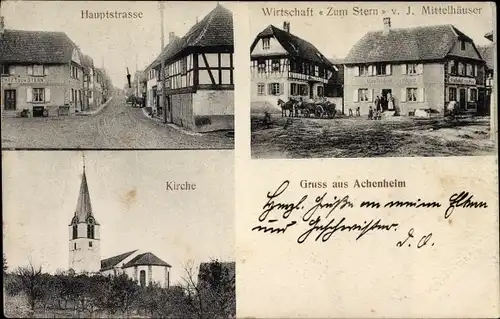 Hauptstrasse
Wirtschaft « Zum Stern » v. J. Mittelhäuser
Kirche
Gruss aus Achenheim
Herzl. Grüße an meine Eltern
und Geschwister.
D. O.